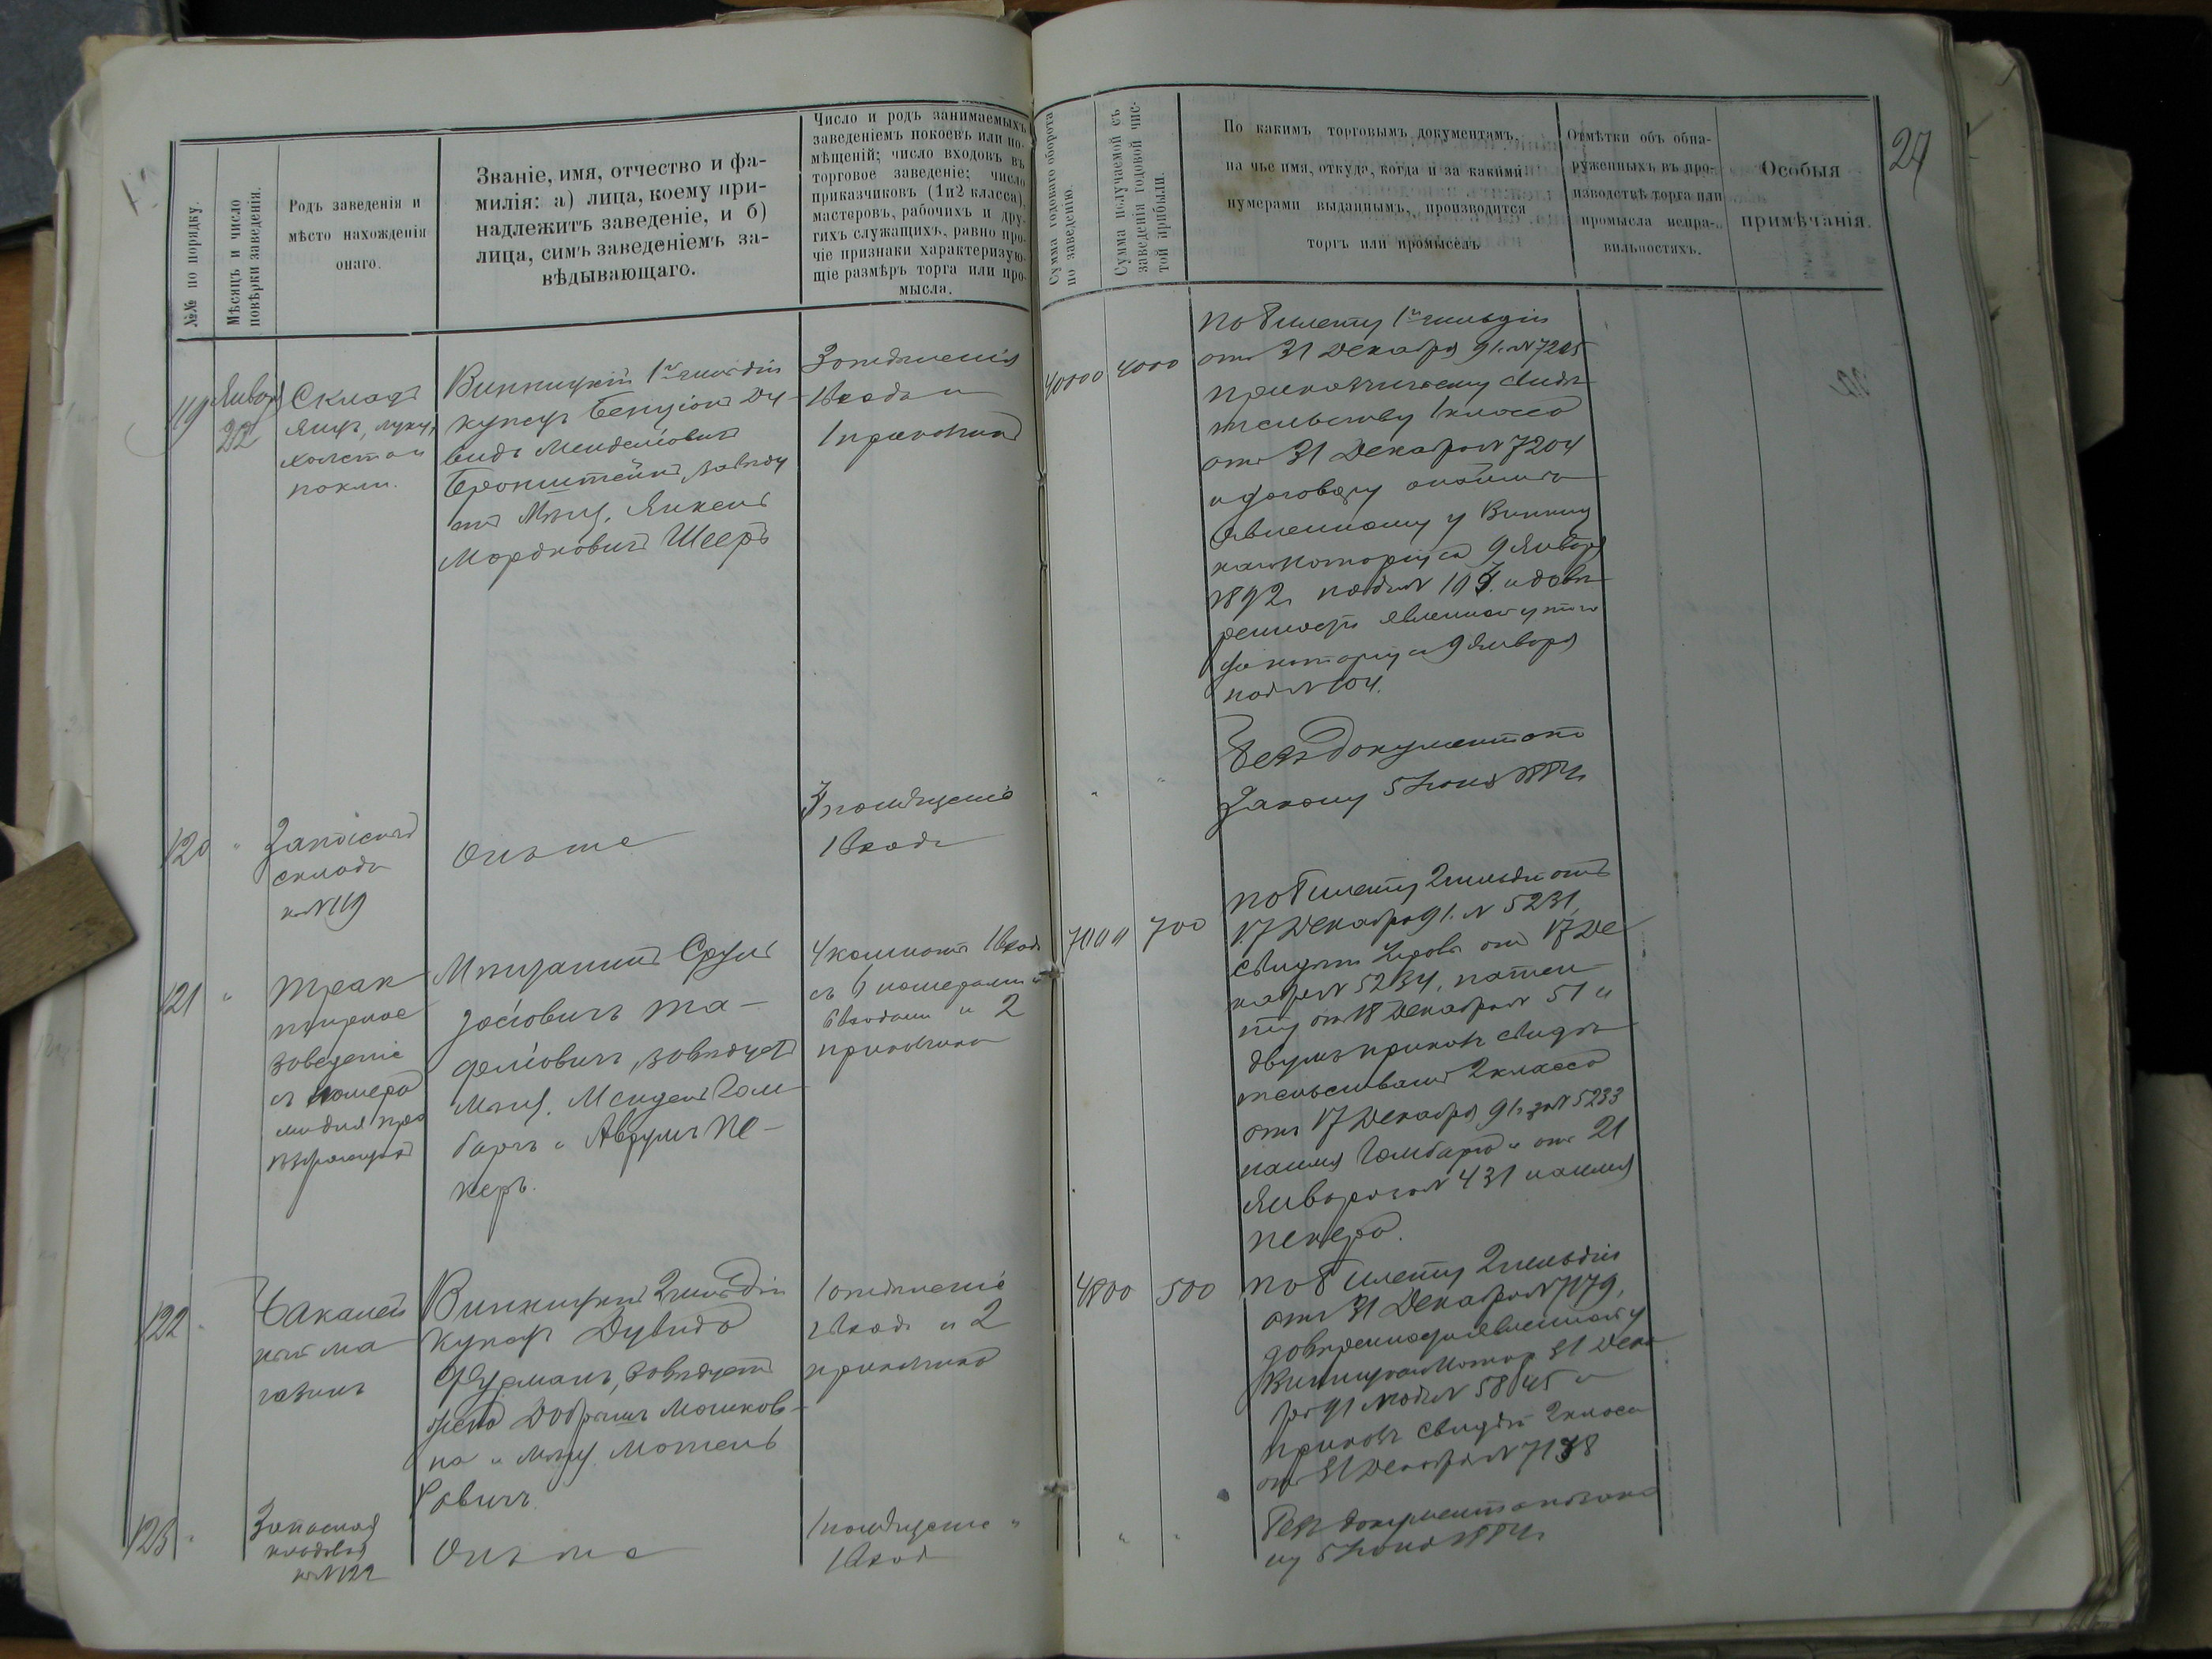 №№ по порядку.
Мѣсяцъ и число
повѣрки заведенія.
Родъ заведенія и
мѣсто нахожденія
онаго.
Званіе, имя, отчество и фа-
милія: а) лица, коему при-
надлежитъ заведеніе, и б)
лица, симъ заведеніемъ за-
вѣдывающаго.
Число и родъ занимаемыхъ
заведеніемъ покоевъ или по-
мѣщеній; число входовъ въ
торговое заведеніе; число
приказчиковъ (1 и 2 класса),
мастеровъ, рабочихъ и дру-
гихъ служащихъ, равно про-
чіе признаки характеризую-
щіе размѣръ торга или про-
мысла.
Сумма годоваго оборота
по заведенію.
Сумма получаемой съ
заведенія годовой чис-
той прибыли.
По какимъ торговымъ документамъ,
на чье имя, откуда, когда и за какими
нумерами выданнымъ, производится
торгъ или промыселъ
Отмѣтки объ обна-
руженныхъ въ про-
изводствѣ торга или
промысла непра-
вильностяхъ.
Особыя
примѣчанія.
27
119
Январ
22
Складъ
яицъ, муки,
пакли.
Винницкій 1й гильдіи
купецъ Бенціонъ Ду-
видъ Менделіовичъ
Бронштейнъ, завѣду
етъ Мѣщ. Янкель
Мордковичъ Шееръ
3 отдѣленія
1 входъ и
1 прикащикъ
40000
4000
по билету 1й гильдіи
отъ 31 Декабря 91 г. № 7205
приказчичьему свидѣ
тельству 1 класса
отъ 31 Декабря № 7204
и договору
явленному у Винниц
каго Нотаріуса 9 Января
1892 г. подъ № 103. и довѣ
ренности явленной у того
же нотаріуса 9 Января
под № 104.
120
"
Запасный
складъ
къ № 119
Онъ же
3 помѣщенія
1 входъ
"
"
Безъ документа по
Закону 5 Іюня 1884 г.
121
"
Трак
тирное
заведеніе
съ номера
ми для прі
ѣзжающихъ
Мѣщанинъ Сруль
Іосіовичъ Та-
феліовичъ, завѣдуетъ
Мѣщ. Мендель Гом
бархъ и Аврумъ Пе-
керъ.
4 комнаты 1 входъ
съ 6 номерами и
6 входами и 2
прикащика
7000
700
по билету 2 гильдіи отъ
17 Декабря 91 г. № 5231,
отъ 17 Де
кабря № 5234, патен
ту отъ 18 Декабря № 51 и
двумъ приказч. свидѣ
тельствамъ 2 класса
отъ 17 Декабря 91 г. за № 5233
на имя Гомбарха и отъ 21
Января за № 431 на имя
Пекера.
122
"
Бакалей
ный ма
газинъ
Винницкій 2 гильдіи
купецъ Дувидъ
Фурманъ, завѣдуетъ
жена Добрышъ Мошков-
на и Мѣщ. Мотель
Рабичъ.
1 отдѣленіе
1 входъ и 2
прикащика
4800
500
по билету 2 гильдіи
отъ 31 Декабря № 7179,
довѣренности явленной у
Винницкаго Нотар. 31 Дека
бря 91 подъ № 5845 и
приказч. свидѣт. 2 класса
отъ 31 Декабря № 7178
123
"
Запасная
кладовая
къ № 122
Онъ же
1 помѣщеніе "
1 входъ
"
"
Безъ документа по зако
ну 5 Іюня 1884 г.